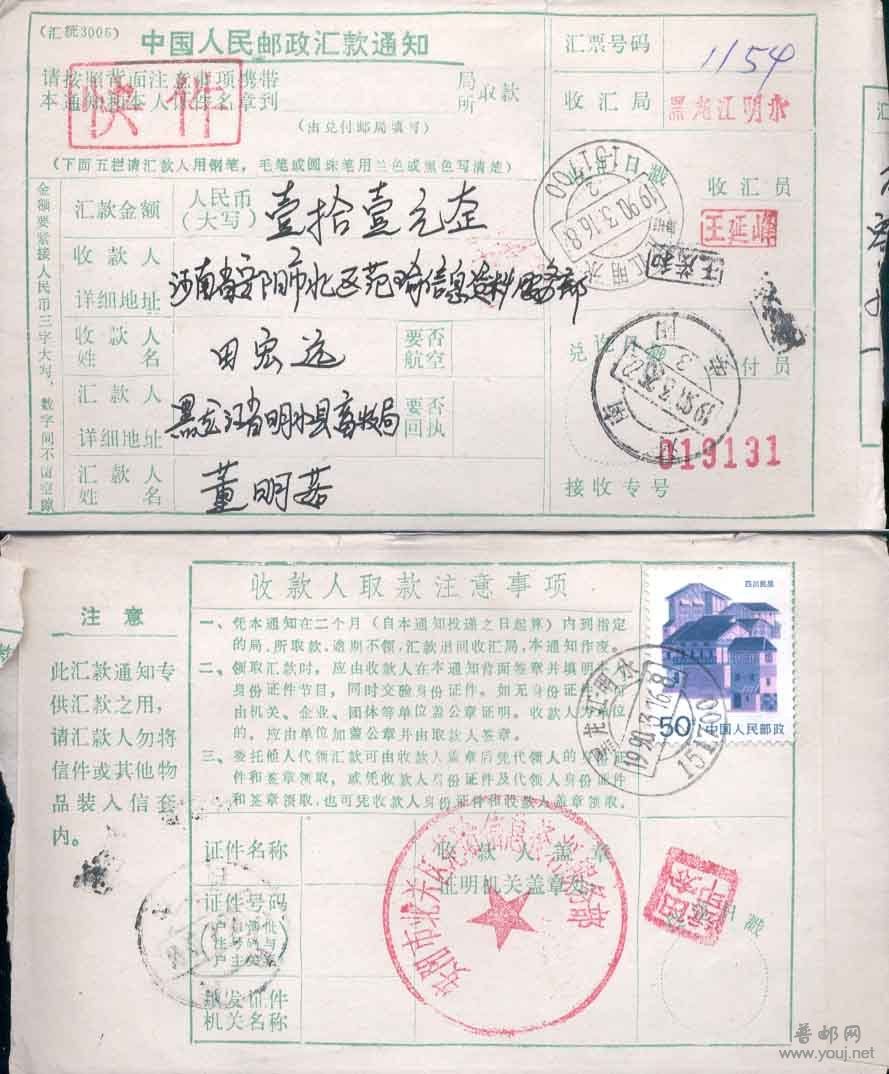 (汇统3006)
中国人民邮政汇款通知
请按照背面注意事项携带
本通知和本人证件名章到
局
所
收款
(由兑付邮局填写)
快件
(下面五栏请汇款人用钢笔,毛笔或圆珠笔用兰色或黑色写清楚)
汇票号码
1154
收汇局
黑龙江明水
收汇员
王延峰
金额要紧接人民币三字大写,数字间不留空隙
汇款金额
人民币
(大写)
壹拾壹元正
收款人
详细地址
河南省安阳市北区范琦信息资料服务部
收款人
姓名
田宏运
要否
航空
汇款人
详细地址
黑龙江省明水县畜牧局
要否
回执
汇款人
姓名
董明
1990.3.16.8
明水
151700
付员
019131
接收专号
收款人取款注意事项
一、凭本通知在二个月(自本通知投递之日起算)内到指定
的局、所取款。逾期不领,汇款退回收汇局,本通知作废。
二、领取汇款时,应由收款人在本通知背面签章并填明本人
身份证件节目,同时交验身份证件。如无身份证件,应
由机关、企业、团体等单位盖公章证明。收款人为单位
的,应由单位加盖公章并由取款人签章。
三、委托他人代领汇款可由收款人盖章后凭代领人的身份证
件和签章领取,或凭收款人身份证件及代领人身份证件
和签章领取,也可凭收款人身份证件和收款人盖章领取。
注意
此汇款通知专
供汇款之用,
请汇款人勿将
信件或其他物
品装入信套
内。
四川民居
50分
中国人民邮政
1990.3.16.8
151700
证件名称
收款人盖章
证件号码
证明机关盖章处
填发证件
机关名称
日戳
普邮网
www.youj.net